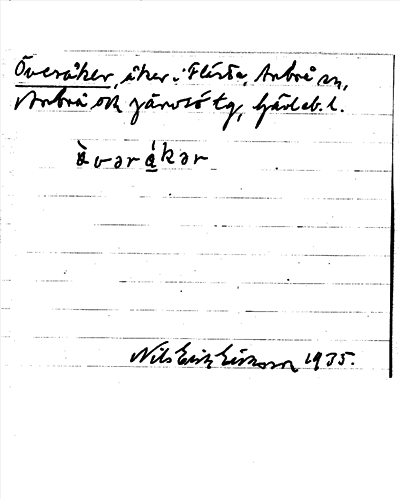 Överåker, åker i Flästa, Arbrå sn,
Arbrå och Järvsö tg, Gävleb. l.
àvərákər
Nils Erik Eriksson 1935.